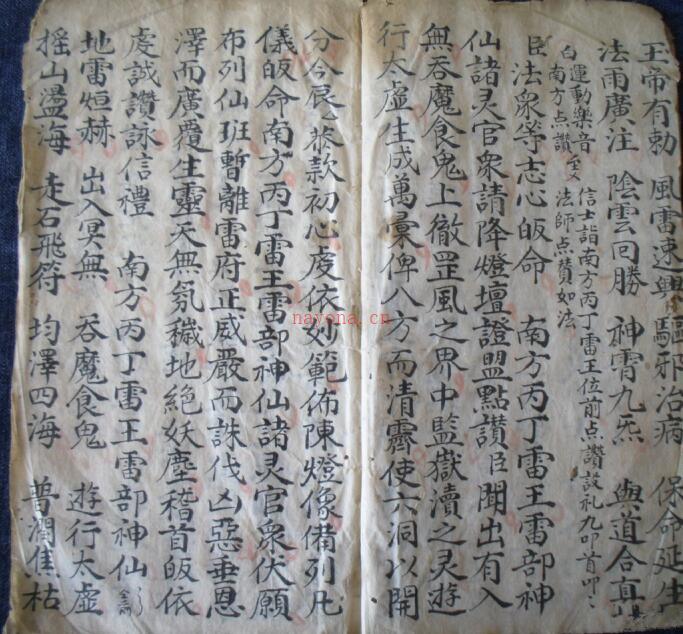 玉帝有勅　風雷速興　驅邪治病　保命延生
法雨廣注　陰雲回勝　神霄九炁　與道合真
白運動樂音　信士詣南方丙丁雷王位前点讚設礼九叩首叩〻
南方点讚　法師点赞如法
臣法衆等志心皈命　南方丙丁雷王雷部神
仙諸灵官衆請降燈壇證盟點讚臣聞出有入
無吞魔食鬼上徹罡風之界中監獄瀆之灵遊
行太虚生成萬彙俾八方而清霽使六洞以開
分合辰〻恭款初心虔依妙範佈陳燈像備列凡
儀皈命南方丙丁雷王雷部神仙諸灵官衆伏願
布列仙班暫離雷府正威嚴而誅伐凶惡垂恩
澤而廣覆生靈天無氛穢地絶妖塵稽首皈依
虔誠讚詠信禮　南方丙丁雷王雷部神仙
地雷烜赫　出入冥無　吞魔食鬼　遊行太虚
摇山盪海　走石飛符　均澤四海　普潤焦枯
nayona.cn